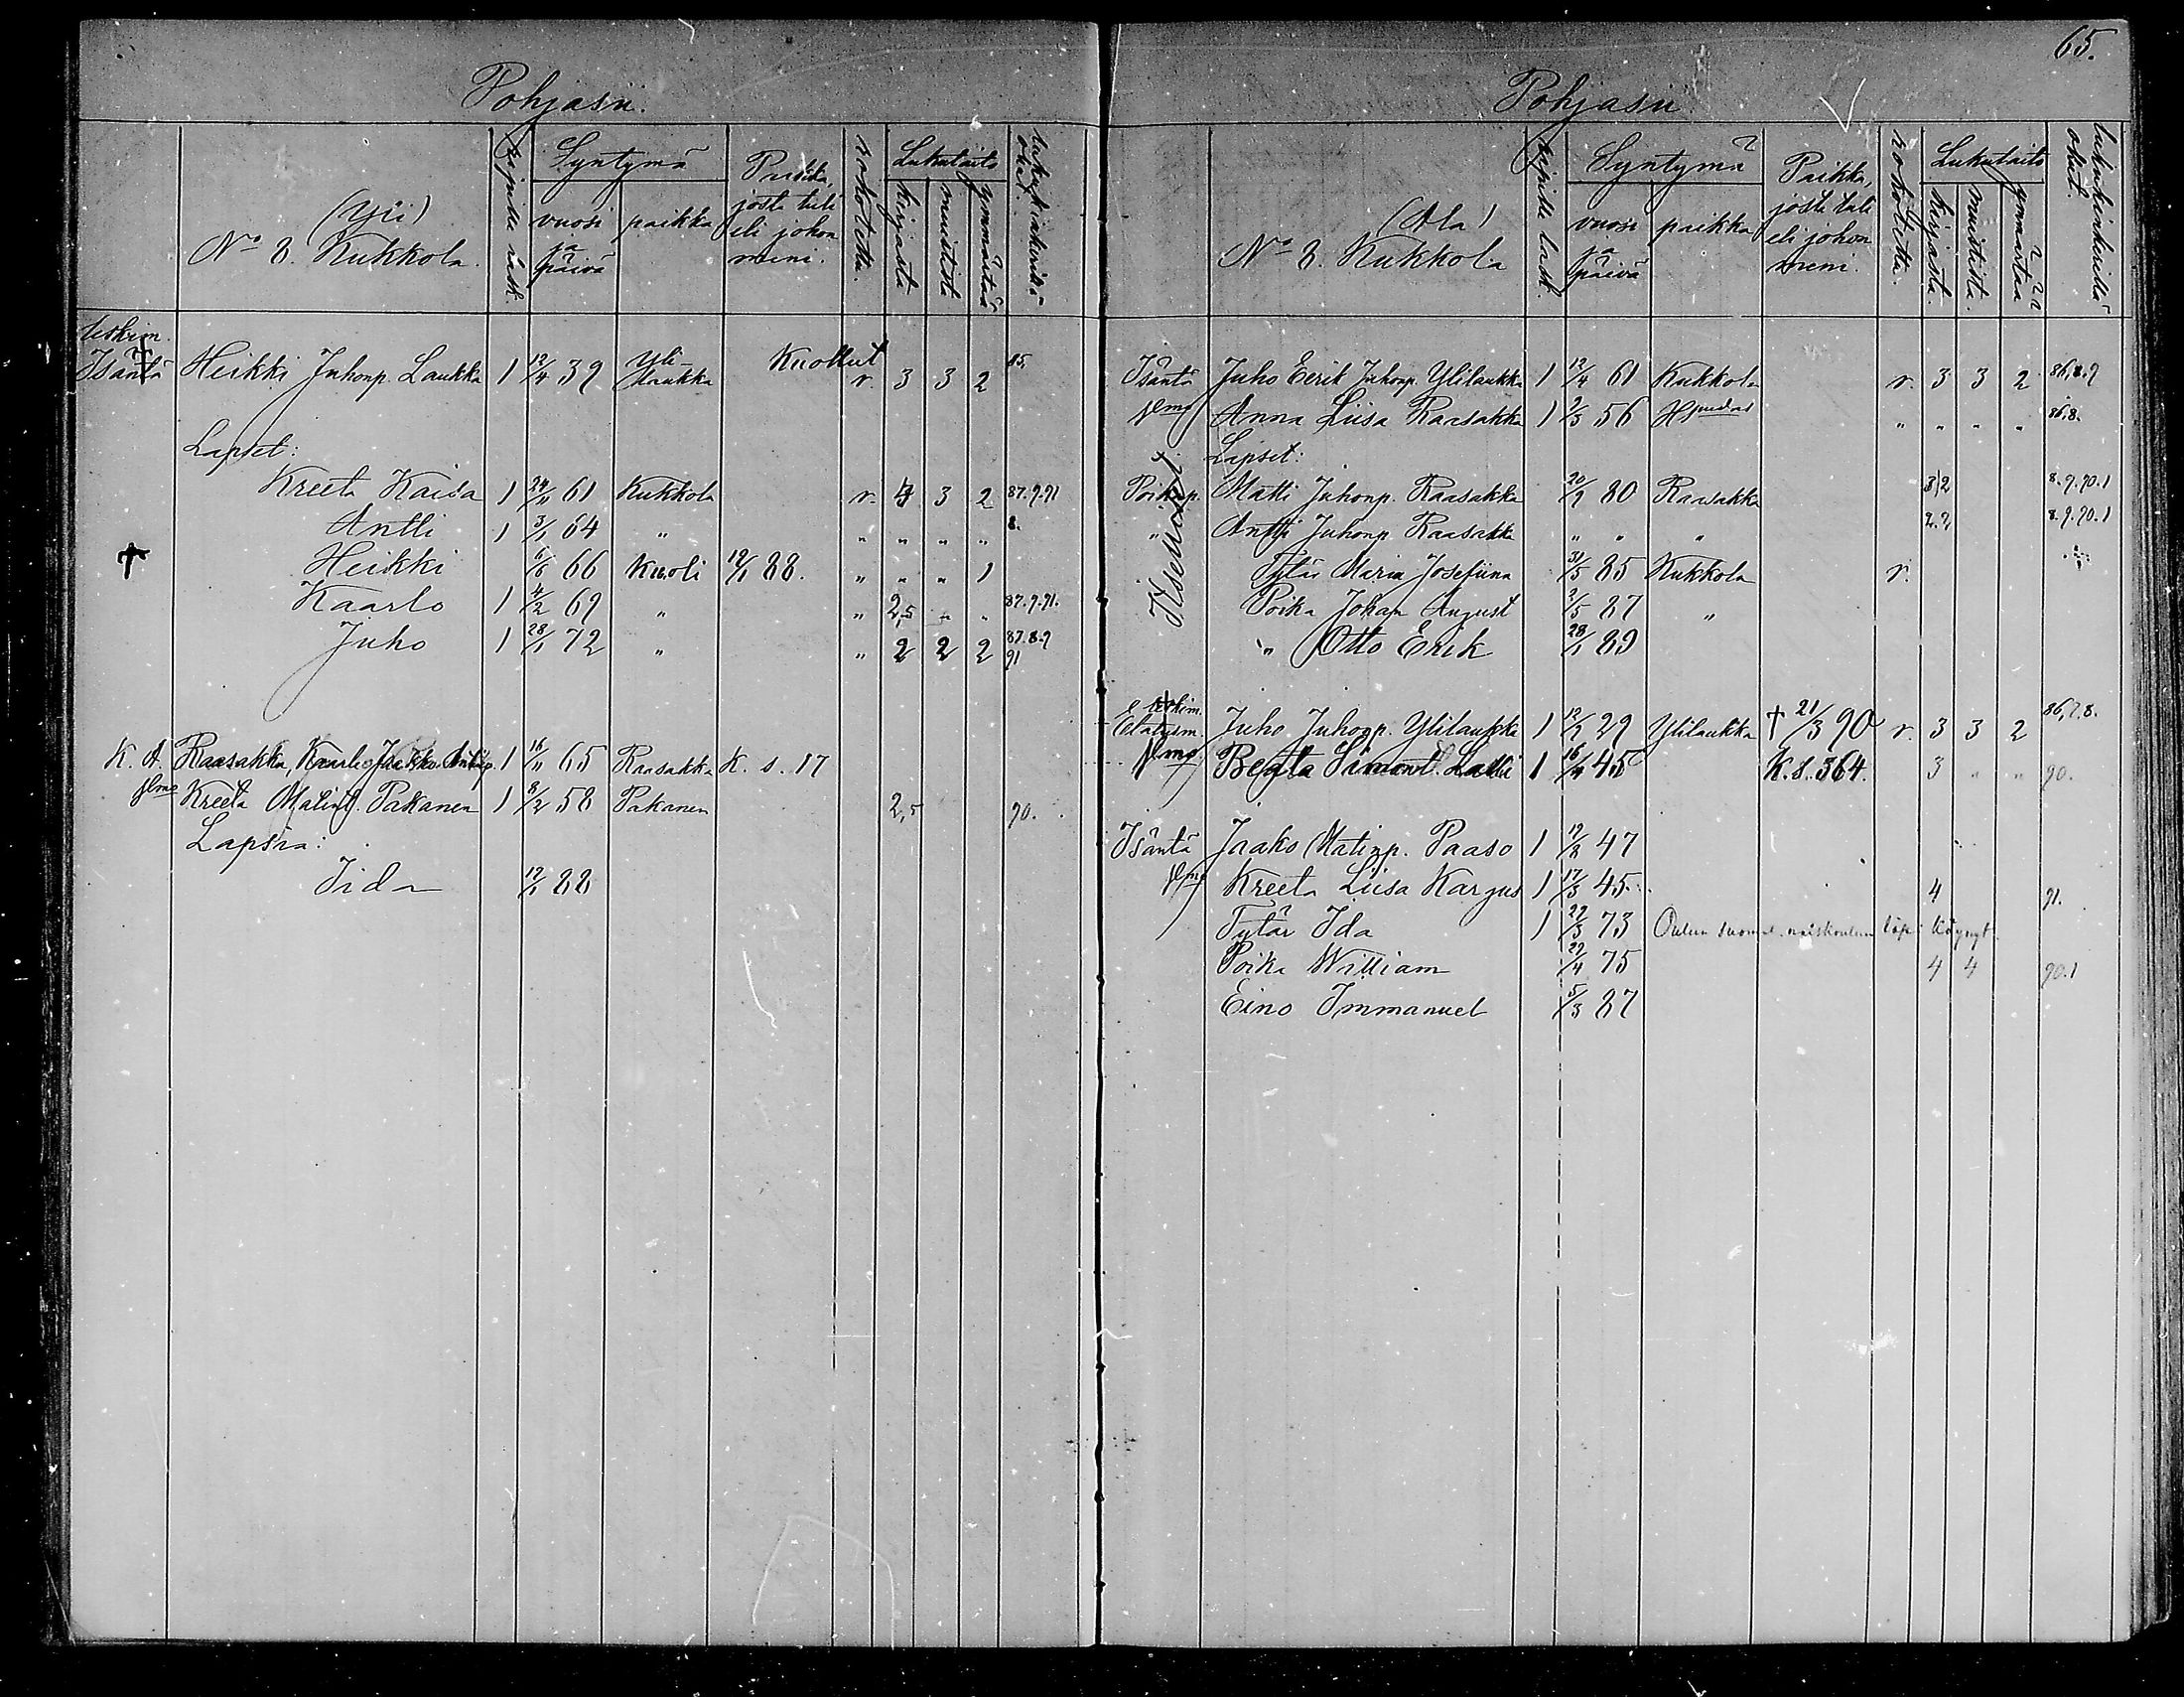 Pohjasu.
(Yli)
No 8. Kukkola.
ripille lask.
Syntymä
vuosi ja päivä
paikka
Paikka, josta tuli eli johon meni.
rokotettu.
Lukutaito
kirjasta
muistista
ymmärtää
lukukinkerillä ollut.
Leskim.
Isäntä Heikki Juhonp. Laukka 1 12/4 39 Yli-Laukka Kuollut r. 3 3 2 85.
Lapset:
Kreeta Kaisa 1 24/11 61 Kukkola r. 4 3 2 87.9.91
Antti 1 3/1 64 " " " " " 8.
† Heikki 6/8 66 Kuoli 12/1 88. " " " 1
Kaarlo 1 4/2 69 " " 2,5 " " 87.9.91.
Juho 1 28/1 72 " " 2 2 2 87.8.9 91
K. A. Raasakka, Kaarlo Jaakko Antinp. 1 16/11 65 Raasakka K. s. 17
Kreeta Matint. Pakanen 1 8/2 58 Pakanen 2,5 90.
Lapsia:
Iida 12/1 88
65.
Pohjasu
(Ala)
No 8. Kukkola
ripille lask.
Syntymä
vuosi ja päivä
paikka
Paikka, josta tuli eli johon meni.
rokotettu.
Lukutaito
kirjasta.
muistista.
ymmärtää
lukukinkerillä ollut.
Isäntä Juho Eerik Juhonp. Ylilaukka 1 12/4 61 Kukkola r. 3 3 2 86,8.9
Anna Liisa Raasakka 1 2/3 56 Hjudas " " " " 86,8.
Lapset:
Poikap. Matti Juhonp. Raasakka 20/9 80 Raasakka 3|2 8.9.90.1
" Antti Juhonp. Raasakka " " " 2.2 8.9.90.1
Tytär Maria Josefiina 31/5 85 Kukkola r.
Poika Johan August 2/5 87 "
" Otto Erik 28/1 89
Itsenäisti
Leskim.
Elatusm. Juho Juhonp. Ylilaukka 1 12/1 29 Ylilaukka † 21/3 90 r. 3 3 2 86,7.8.
Beata Simont. Lalli 1 16/4 45 K.s.364. 3 " " 90.
Isäntä Jaako Matinp. Paaso 1 12/8 47
Kreeta Liisa Karjus 1 17/3 45. 4 91.
Tytär Ida 1 22/3 73 Oulun suomal. naiskoulun läpi käynyt.
Poika William 22/4 75 4 4 90.1
Eino Immanuel 5/3 87